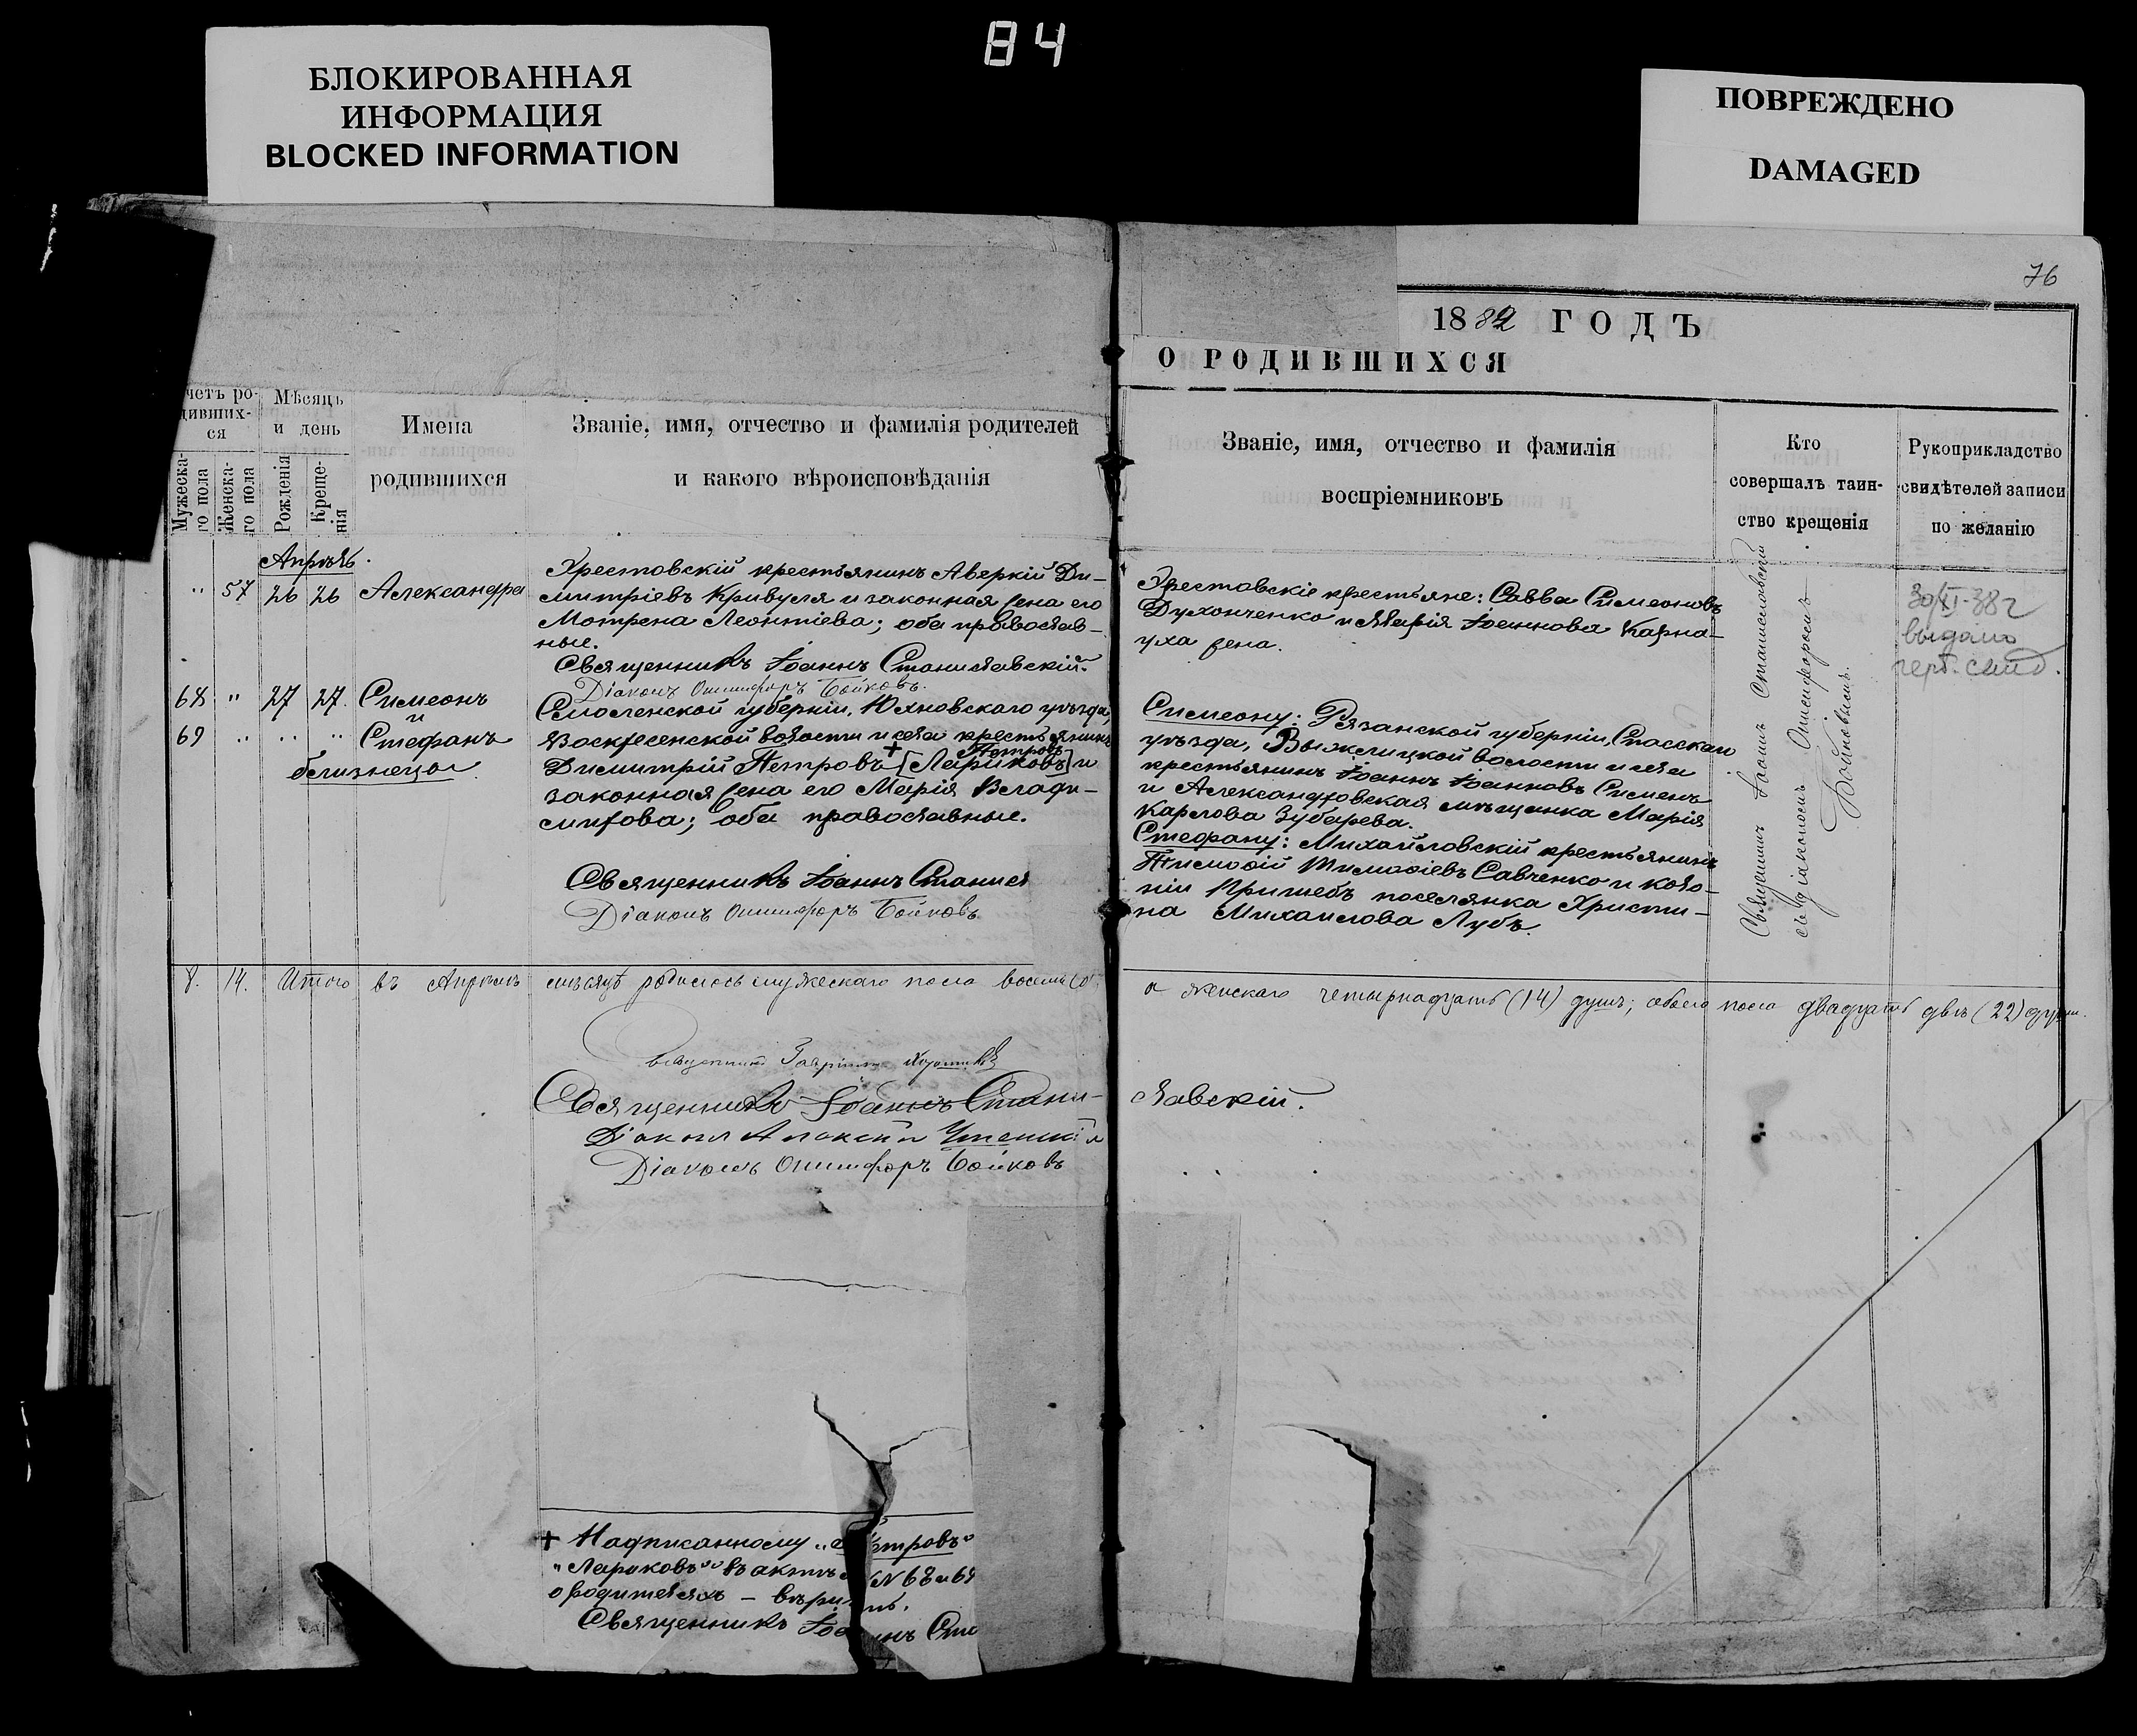 84
БЛОКИРОВАННАЯ
ИНФОРМАЦИЯ
BLOCKED INFORMATION
ПОВРЕЖДЕНО
DAMAGED
76
1882 ГОДЪ
О РОДИВШИХСЯ
четъ ро-
дивших-
ся
Мужеска-
го пола
Женска-
го пола
Мѣсяцъ
и день
Рожденія
Креще-
нія
Имена
родившихся
Званіе, имя, отчество и фамилія родителей
и какого вѣроисповѣданія
Званіе, имя, отчество и фамилія
воспріемниковъ
Кто
совершалъ таин-
ство крещенія
Рукоприкладство
свидѣтелей записи
по желанію
Апрѣль.
" 57 26 26 Александра
Хрестовскій крестьянинъ Аверкій Ди-
митріевъ Кривуля и законная жена его
Мотрена Леонтіева; оба православ-
ные.
Священникъ Іоаннъ Станиславскій.
Діаконъ Онисифоръ Бойковъ.
Хрестовскіе крестьяне: Савва Симеоновъ
Духонченко и Марія Іоаннова Карна-
уха жена.
30/XI-38 г
выдано
свид.
68 " 27 27. Симеонъ
и
69 " " " Стефанъ
близнецы
Смоленской губерніи, Юхновскаго уѣзда,
Воскресенской волости и села крестьянинъ
Петровъ
Димитрій Петровъ + [Лариковъ] и
законная жена его Марія Влади-
мирова; оба православные.
Священникъ Іоаннъ Станисл
Діаконъ Онисифоръ Бойковъ
Симеону: Рязанской губерніи, Спасскаго
уѣзда, Выжелицкой волости и села
крестьянинъ Іоаннъ Іоанновъ Сименъ
и Александровская мѣщанка Марія
Карлова Зубарева.
Стефану: Михайловскій крестьянинъ
Тимоѳій Тимоѳіевъ Савченко и коло-
ніи Пришебъ поселянка Христи-
на Михаилова Лубъ.
Священникъ Іоаннъ Станиславскій
съ діакономъ Онисифоромъ
Бойковымъ.
8. 14. Итого въ Апрѣлѣ мѣсяцѣ родилось мужескаго пола восемь (8)
а женскаго четырнадцать (14) душъ; обоего пола двадцать двѣ (22) души.
Священникъ
Священникъ Іоаннъ Стани-
славскій.
Діаконъ Алексій
Діаконъ Онисифоръ Бойковъ
+ Надписанному "Петровъ"
"Лариковъ" въ актѣ №№ 68 и 69
о родителяхъ – вѣрить.
Священникъ Іоаннъ Ста